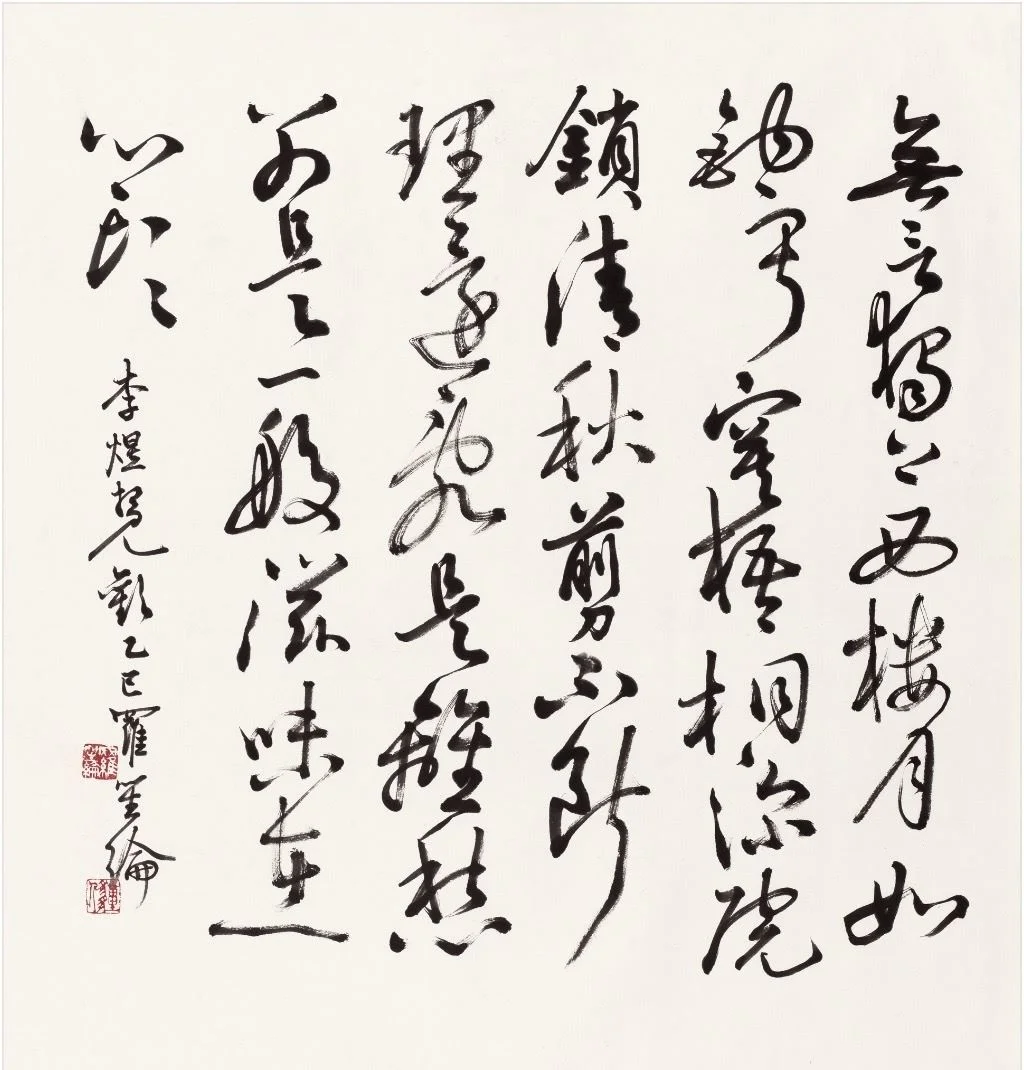 無言獨上西樓月如
鈎寂寞梧桐深院
鎖清秋剪不斷
理還亂是離愁
別是一般滋味在
心頭
李煜相見歡乙巳羅笙綸